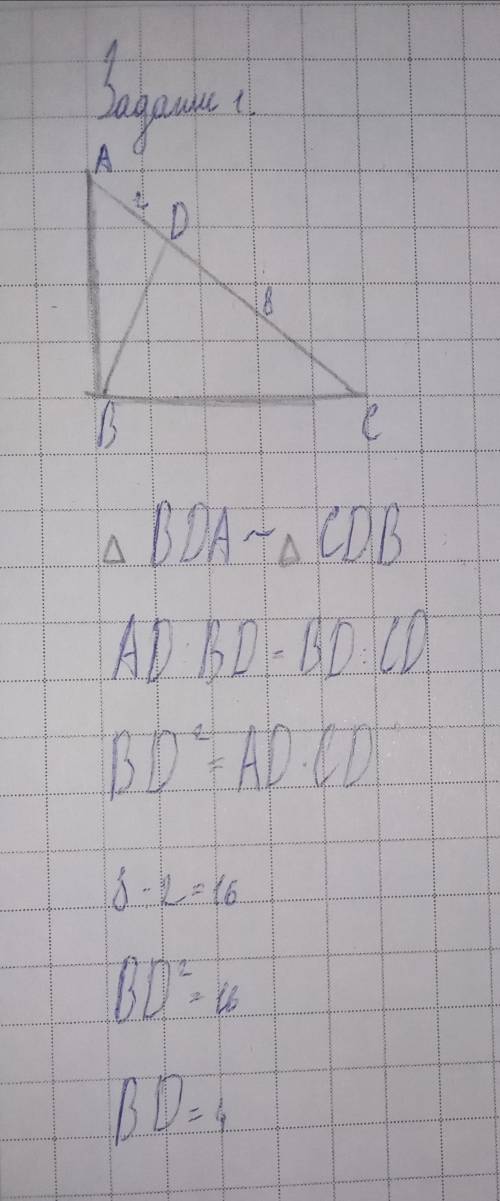 Задание 1.
A
2
D
8
B
C
△ BDA ~ △ CDB
AD : BD = BD : CD
BD² = AD · CD
8 · 2 = 16
BD² = 16
BD = 4